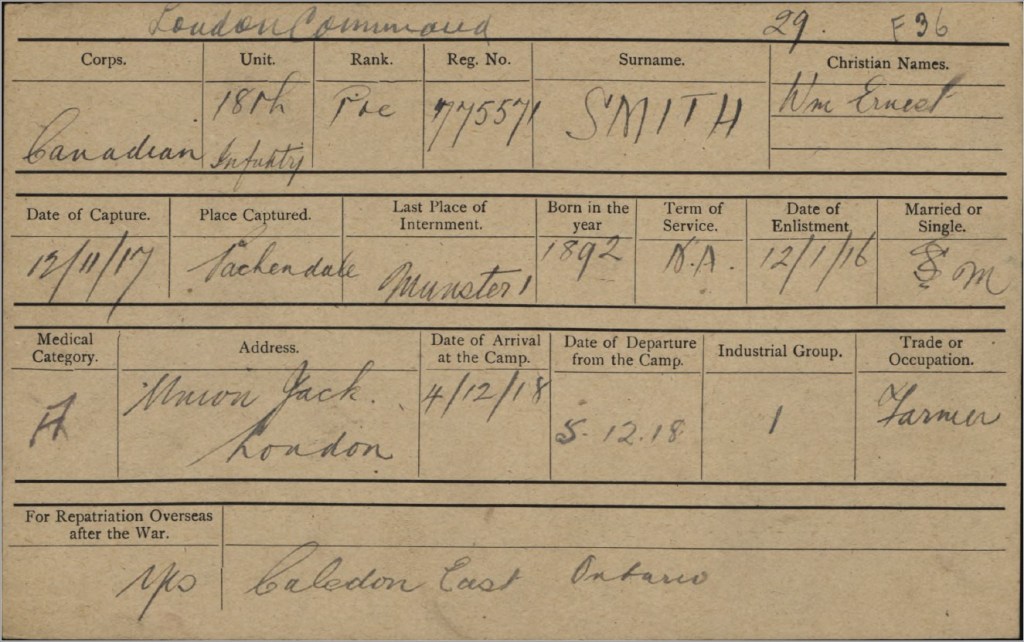 London Command 29. F36
Corps. Unit. Rank. Reg. No. Surname. Christian Names.
Canadian 18th Infantry Pte 775571 SMITH Wm Ernest
Date of Capture. Place Captured. Last Place of Internment. Born in the year Term of Service. Date of Enlistment Married or Single.
12/11/17 Pachendale Munster 1 1892 N.A. 12/1/16 S M
Medical Category. Address. Date of Arrival at the Camp. Date of Departure from the Camp. Industrial Group. Trade or Occupation.
A Union Jack. 4/12/18 5.12.18 1 Farmer
London
For Repatriation Overseas after the War.
yes Caledon East Ontario